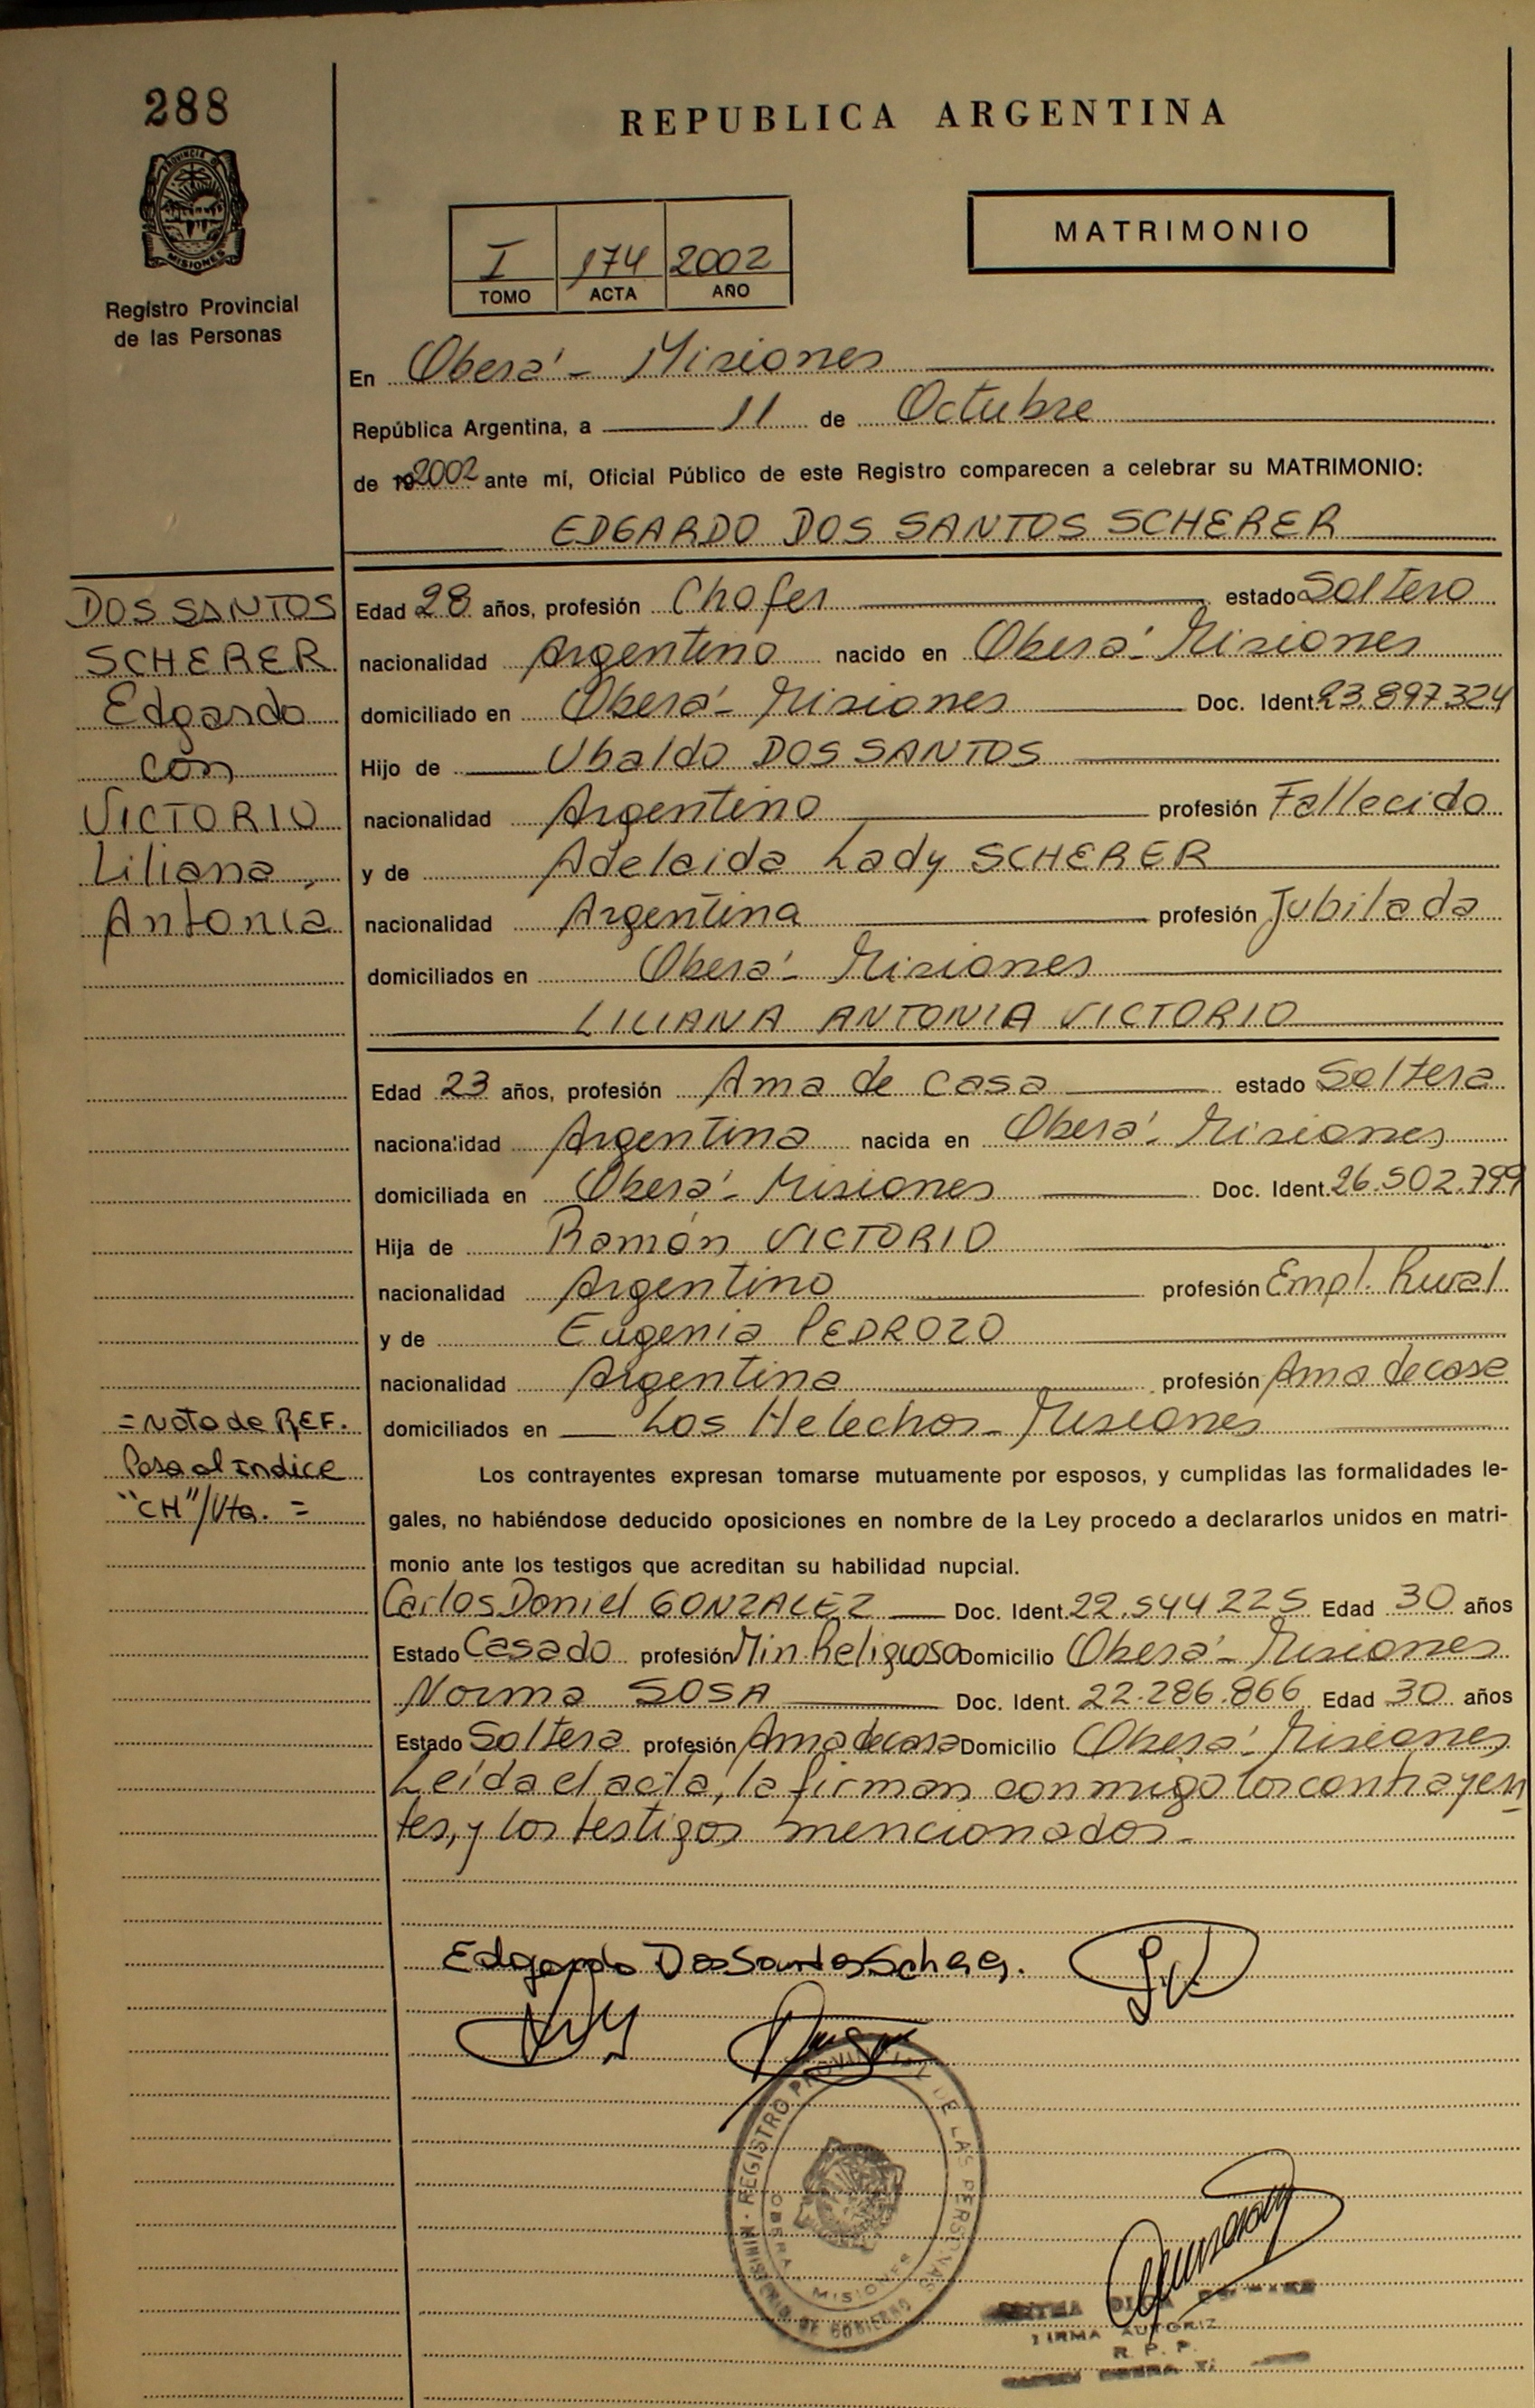 288
REPUBLICA ARGENTINA
PROVINCIA D
MISIONES
Registro Provincial
de las Personas
I 174 2002
TOMO ACTA AÑO
MATRIMONIO
En Oberá - Misiones
República Argentina, a 11 de Octubre
de 192002 ante mí, Oficial Público de este Registro comparecen a celebrar su MATRIMONIO:
EDGARDO DOS SANTOS SCHERER
DOS SANTOS
SCHERER
Edgardo
con
VICTORIO
Liliana
Antonia
Edad 28 años, profesión Chofer estado Soltero
nacionalidad Argentino nacido en Oberá - Misiones
domiciliado en Oberá - Misiones Doc. Ident. 23.897.324
Hijo de Ubaldo DOS SANTOS
nacionalidad Argentino profesión Fallecido
y de Adelaida Lady SCHERER
nacionalidad Argentina profesión Jubilada
domiciliados en Oberá - Misiones
LILIANA ANTONIA VICTORIO
Edad 23 años, profesión Ama de casa estado Soltera
nacionalidad Argentina nacida en Oberá - Misiones
domiciliada en Oberá - Misiones Doc. Ident. 26.502.799
Hija de Ramón VICTORIO
nacionalidad Argentino profesión Empl. Rural
y de Eugenia PEDROZO
nacionalidad Argentina profesión Ama de casa
domiciliados en Los Helechos - Misiones
= Nota de REF.
Pasa al Indice
"CH"/Vta. =
Los contrayentes expresan tomarse mutuamente por esposos, y cumplidas las formalidades le-
gales, no habiéndose deducido oposiciones en nombre de la Ley procedo a declararlos unidos en matri-
monio ante los testigos que acreditan su habilidad nupcial.
Carlos Daniel GONZALEZ Doc. Ident. 22.544.225 Edad 30 años
Estado Casado profesión Min. Religioso Domicilio Oberá - Misiones
Norma SOSA Doc. Ident. 22.286.866 Edad 30 años
Estado Soltera profesión Ama de casa Domicilio Oberá - Misiones
Leída el acta, la firman conmigo los contrayen
tes, y los testigos mencionados -
Edgardo Dos Santos Scherer.
REGISTRO PROVINCIAL DE LAS PERSONAS
MINISTERIO DE GOBIERNO
OBERA MISIONES
FIRMA AUTORIZ
R. P. P.